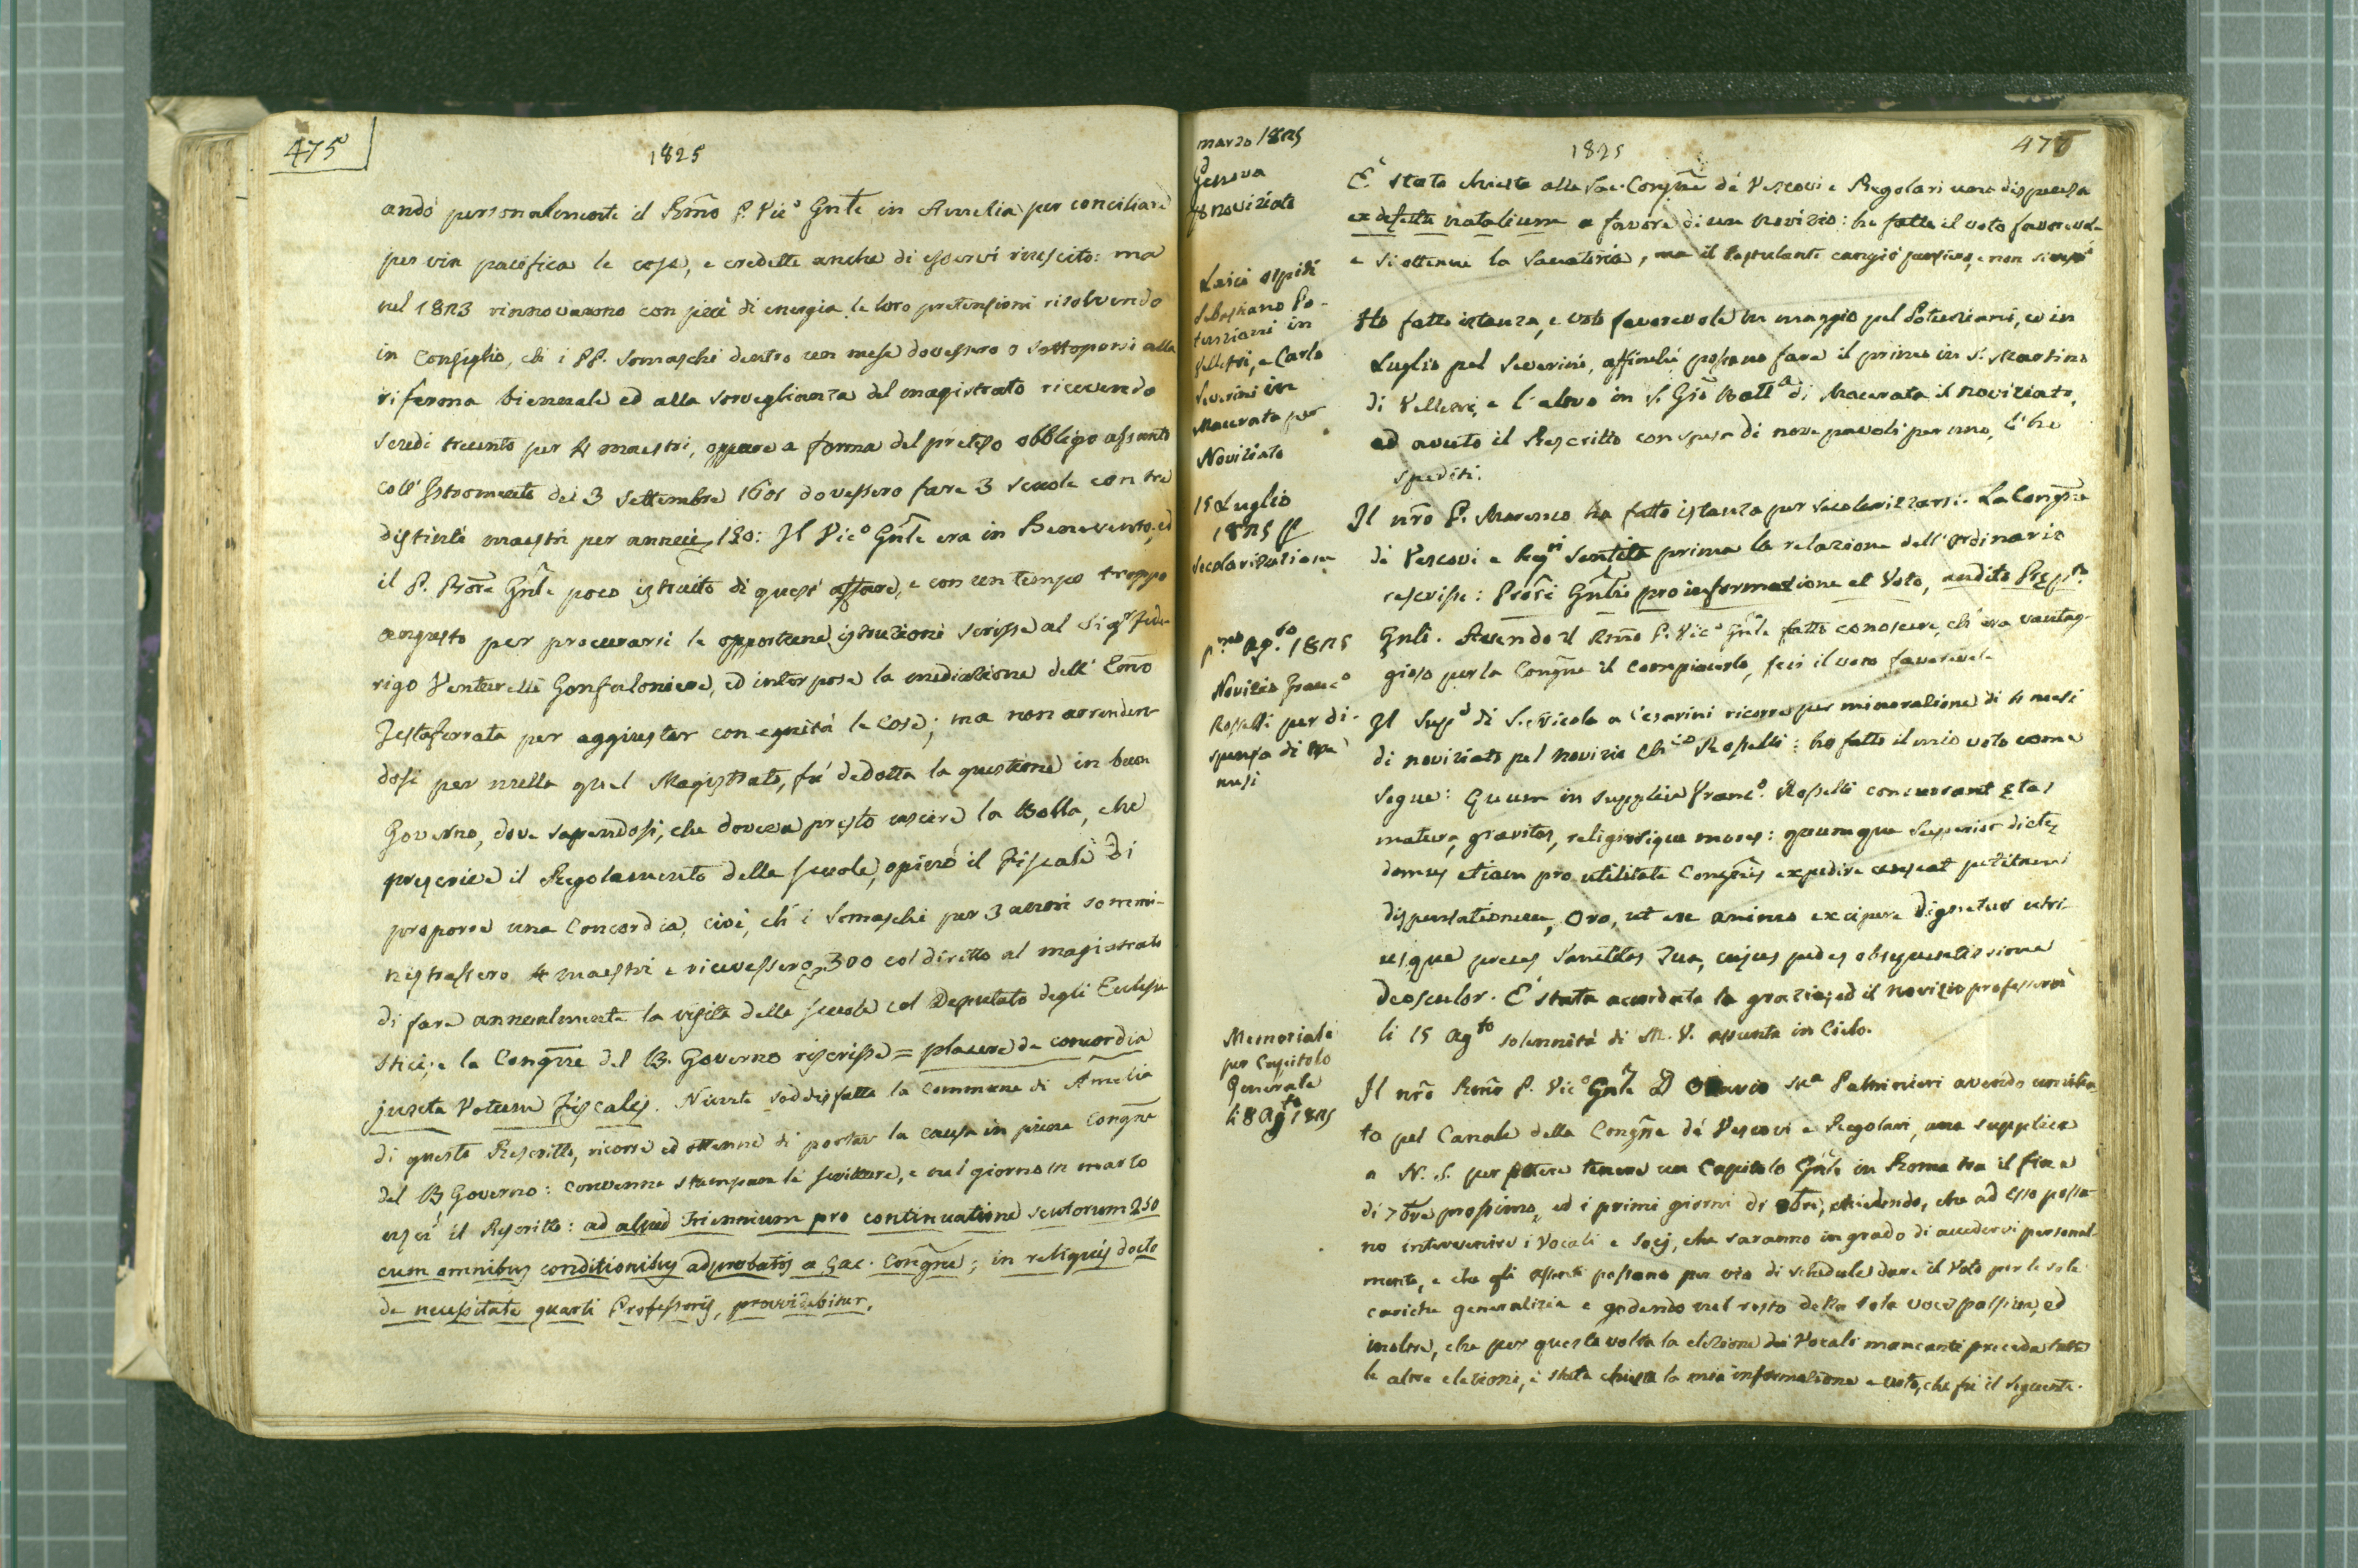 475
1825
andò personalmente il Rm̃o P. Vicº Gñle in Amelia per conciliare
per via pacifica le cose, e credette anche di esservi riuscito: ma
nel 1823 rinnovarono con più di energia le loro pretensioni risolvendo
in Consiglio, ch' i PP. Somaschi dentro un mese dovessero o sottoporsi alla
riferma biennale ed alla sorveglianza del magistrato ricevendo
scudi trecento per 4 maestri, oppure a forma del preteso obbligo assunto
coll' Istromento dei 3 Settembre 1601 dovessero fare 3 scuole con tre
distinti maestri per annui 120: Il Vicº Gñle era in Benevento, ed
il P. Prõre Gñle poco istruito di quest' affare, e con un tempo troppo
angusto per procurarsi le opportune istruzioni scrisse al Sigr Fede-
rigo Venturelli Gonfaloniere, ed interpose la mediazione dell' Em̃o
Testaferrata per aggiustar con equità le cose; ma non arrenden-
dosi per nulla quel Magistrato, fu dedotta la questione in buon
Governo, dove sapendosi, che doveva presto uscire la Bolla, che
prescrive il Regolamento delle scuole, opinò il Fiscale di
proporre una Concordia, cioè, ch' i Somaschi per 3 anni sommi-
nistrassero 4 maestri e ricevessero 300 col diritto al magistrato
di fare annualmente la visita delle scuole col Deputato degli Eccelsia
stici; e la Congñe del B. Governo riscrisse = placere de concordia
juxta Votum Fiscalis. Niente soddisfatta la Commune di Amelia
di questo Rescritto, ricorse ed ottenne di portar la causa in piena Congñe
del B. Governo: convenne stampare le scritture, e nel giorno 12 marzo
uscì il Rescritto: ad aliud triennium pro continuatione scutorum 250
cum omnibus conditionibus adprobatis a Sac. Congñe; in reliquis docto
de necessitate quarti Professoris, providebitur.
476
1825
marzo 1825
Genova
pel noviziato
È stata chiesta alla Sac. Congñe dé Vescovi e Regolari una dispensa
ex defectu natalium a favore di un novizio: ho fatto il voto favorevole
e si ottenne la Sanatoria, ma il Postulante cangiò pensiero, e non si
Laici ospiti
Sebastiano Po-
tenziani in
Velletri, e Carlo
Severini in
Macerata per
Noviziato
Ho fatto istanza, e voto favorevole in maggio pel Potenziani, ed in
Luglio pel Severini, affinchè possano fare il primo in S. Martino
di Velletri, e l' altro in S. Gio Batta di Macerata il noviziato,
ed avuto il Rescritto con spesa di nove pavoli per uno, l' ho
spediti.
15 Luglio
1825
secolarizzazione
Il nr̃o P. Maranco ha fatto istanza per secolarizzarsi. La Congñe
di Vescovi e Regri sentita prima la relazione dell' ordinario
rescrisse: Prori Gñli pro informatione et Voto, audito Prępto
Gnli. Avendo il Rm̃o P. Vicº Gñle fatto conoscere, ch' era vantag-
gioso per la Congñe il compiacerlo, feci il voto favorevole
pmo Agto 1825
Novizio Francº
Rosselli per di-
spensa di tre
mesi
Il Supe di S. Nicola a Cesarini ricorre per minorazione di 4 mesi
di noviziato pel novizio Chco Rosselli: ho fatto il mio voto come
segue: Quum in supplici Francº Rosselli concurrant ętas
matura, gravitas, religiosique mores: quumque Superior dictę
domus etiam pro utilitate Congñis expedire censeat petitam
dispensationem, Oro, ut ex animo excipere dignetur utri-
usque preces Sanctitas Tua, cujus pedes obsequentissime
deosculor. È stata accordata la grazia, ed il novizio professerà
li 15 Agto solennità di M. V. assunta in Cielo.
Memoriale
per Capitolo
Generale
li 8 Agto 1825
Il nr̃o Rm̃o P. Vicº Gñle D Ottavio Ma Paltrinieri avendo umilia-
to pel Canale della Congñe dé Vescovi e Regolari, una supplica
a N. S. per potere tenere un Capitolo Gñle in Roma tra il fine
di 7bre prossimo, ed i primi giorni di 8bre, chiedendo, che ad esso possa-
no intervenire i Vocali e Socj, che saranno in grado di accedervi personal-
mente, e che gli assenti possano per via di schedule dare il Voto per le sole
cariche generalizie e godendo nel resto della sola voce passiva, ed
inoltre, che per questa volta la elezione dei Vocali mancanti preceda tutte
le altre elezioni, è stata chiesta la mia informazione e voto, che fu il seguente.